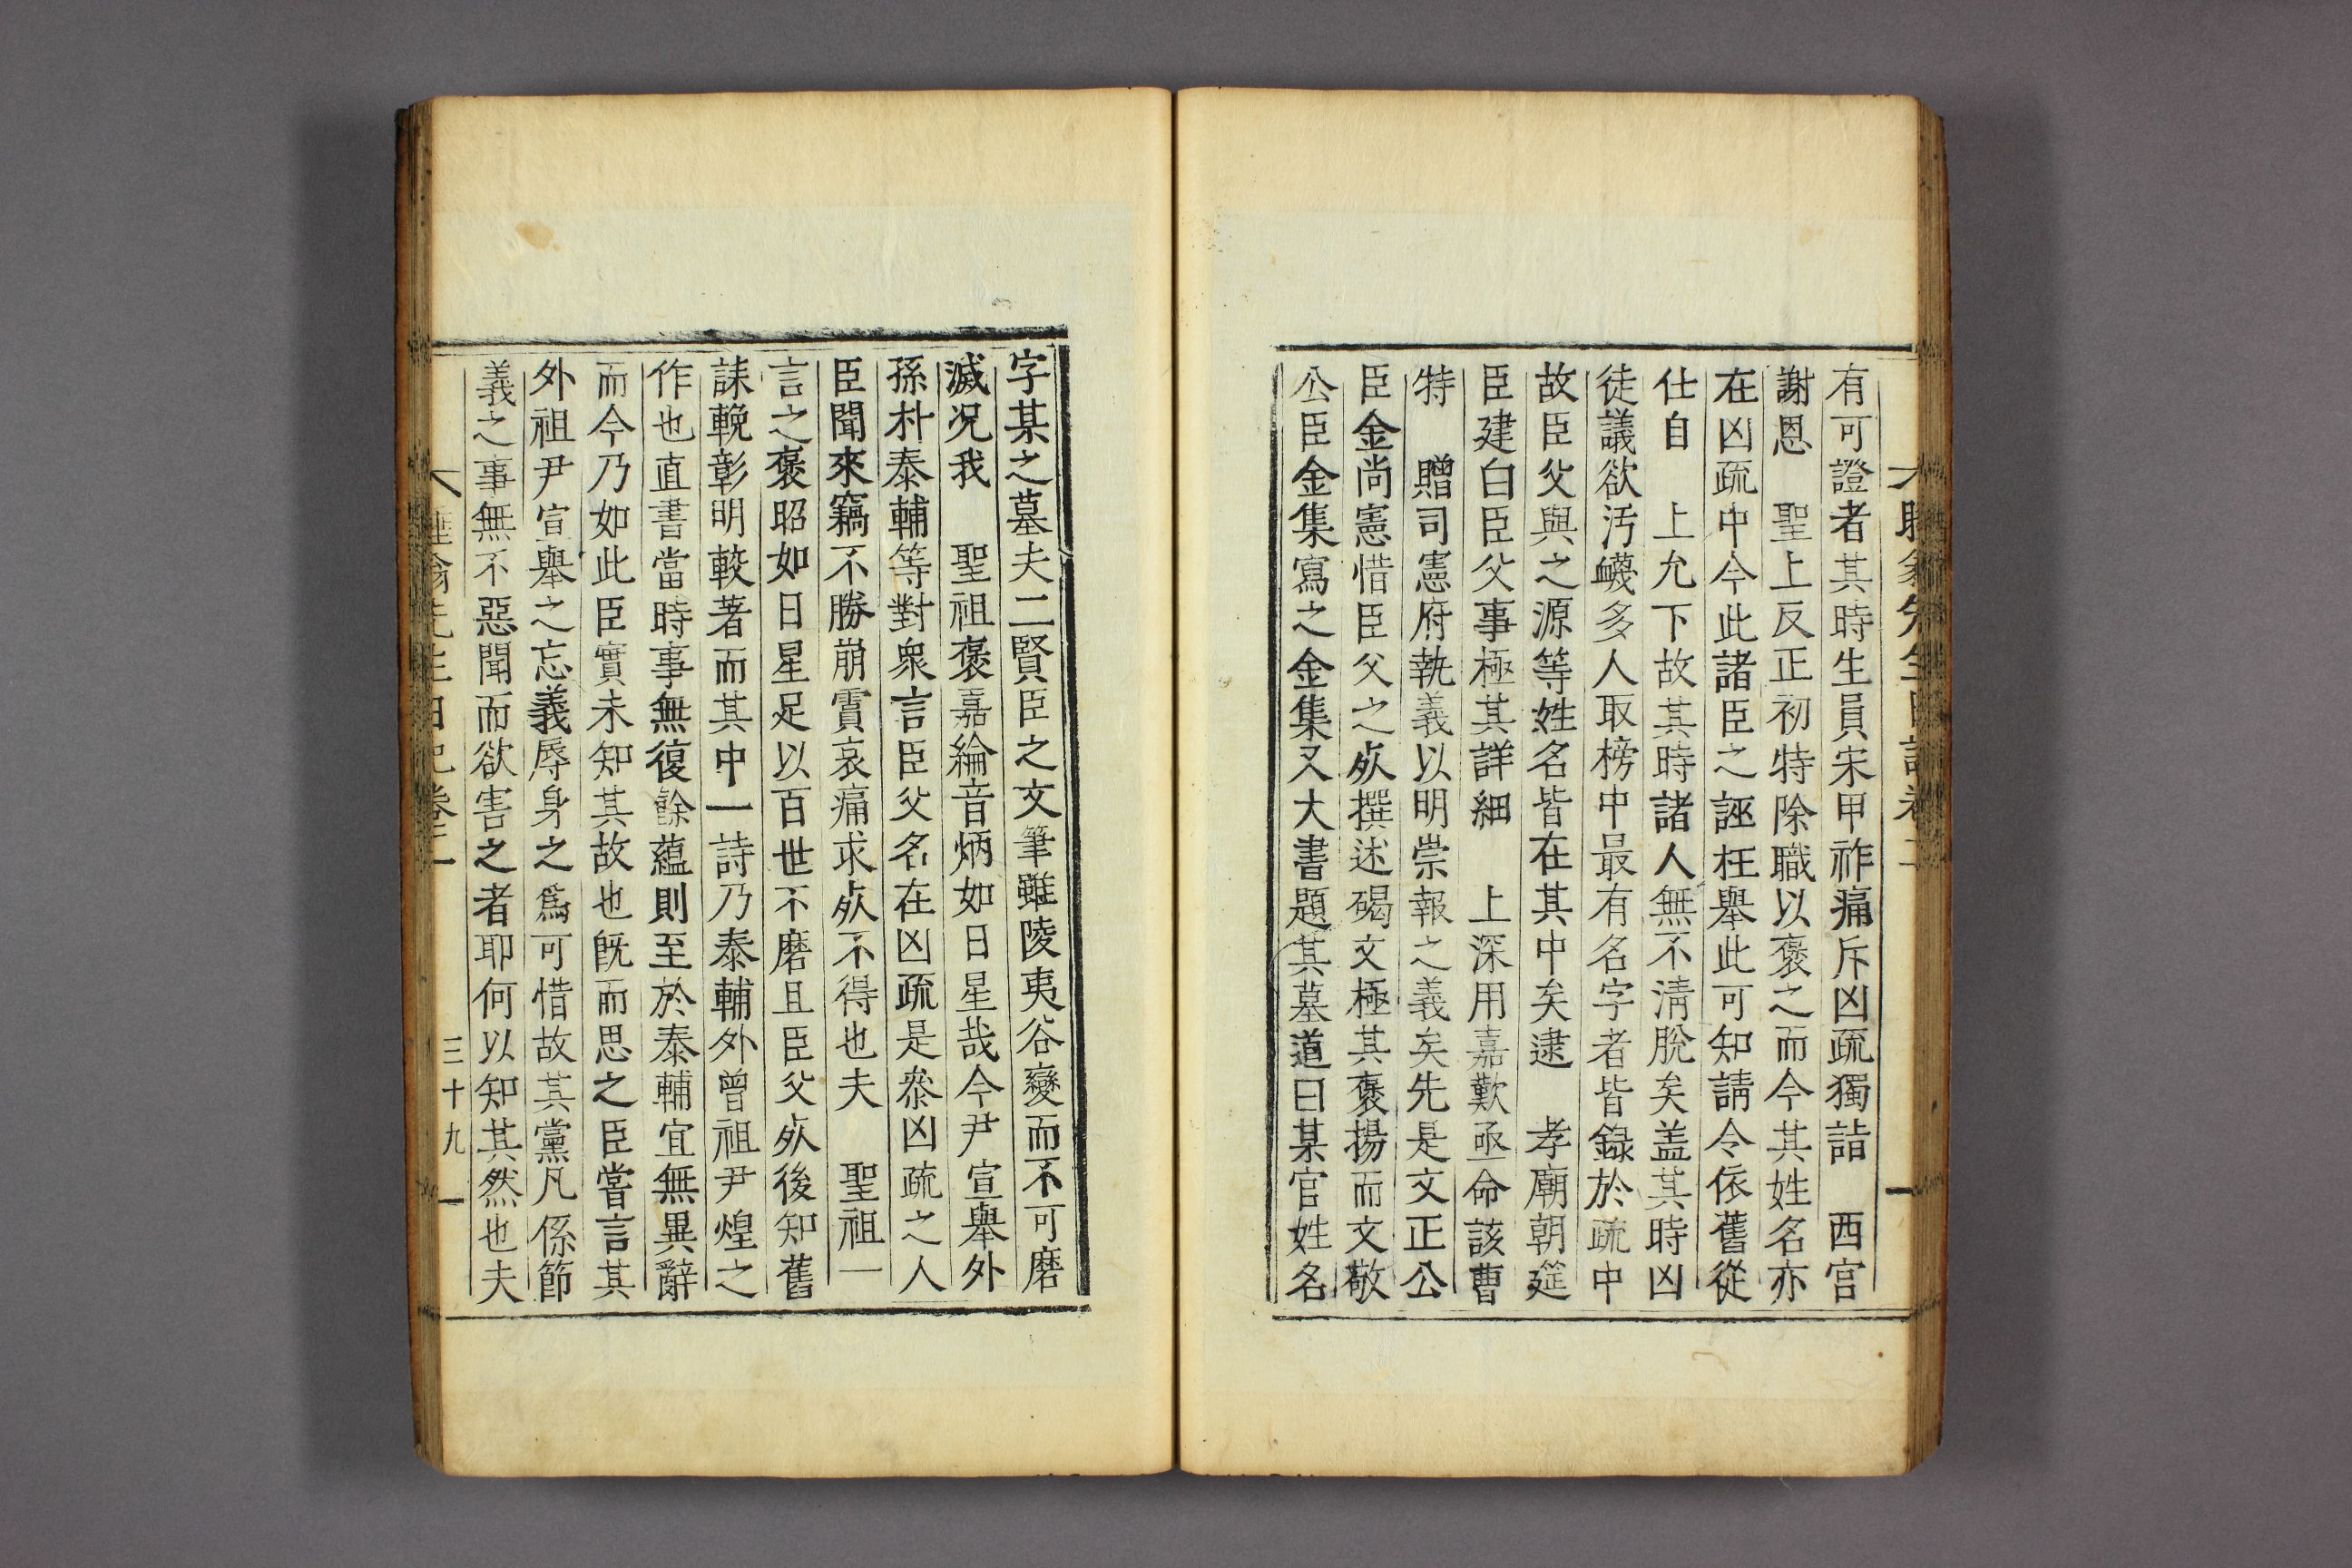 有可證者其時生員宋甲祚痛斥凶疏獨詣　西宮
謝恩　聖上反正初特除職以褒之而今其姓名亦
在凶疏中今此諸臣之誣枉舉此可知請令依舊從
仕自　上允下故其時諸人無不淸脫矣盖其時凶
徒議欲汚衊多人取榜中最有名字者皆錄於疏中
故臣父與之源等姓名皆在其中矣逮　孝廟朝筵
臣建白臣父事極其詳細　上深用嘉歎亟命該曹
特　贈司憲府執義以明崇報之義矣先是文正公
臣金尚憲惜臣父之㱙撰述碣文極其褒揚而文敬
公臣金集寫之金集又大書題其墓道曰某官姓名
字某之墓夫二賢臣之文筆雖陵夷谷變而不可磨
滅况我　聖祖褒嘉綸音炳如日星哉今尹宣舉外
孫朴泰輔等對衆言臣父名在凶疏是叅凶疏之人
臣聞來竊不勝崩霣哀痛求㱙不得也夫　聖祖一
言之褒昭如日星足以百世不磨且臣父㱙後知舊
誄輓彰明較著而其中一詩乃泰輔外曾祖尹煌之
作也直書當時事無復餘蘊則至於泰輔宜無異辭
而今乃如此臣實未知其故也旣而思之臣嘗言其
外祖尹宣舉之忘義辱身之爲可惜故其黨凡係節
義之事無不惡聞而欲害之者耶何以知其然也夫
三十九